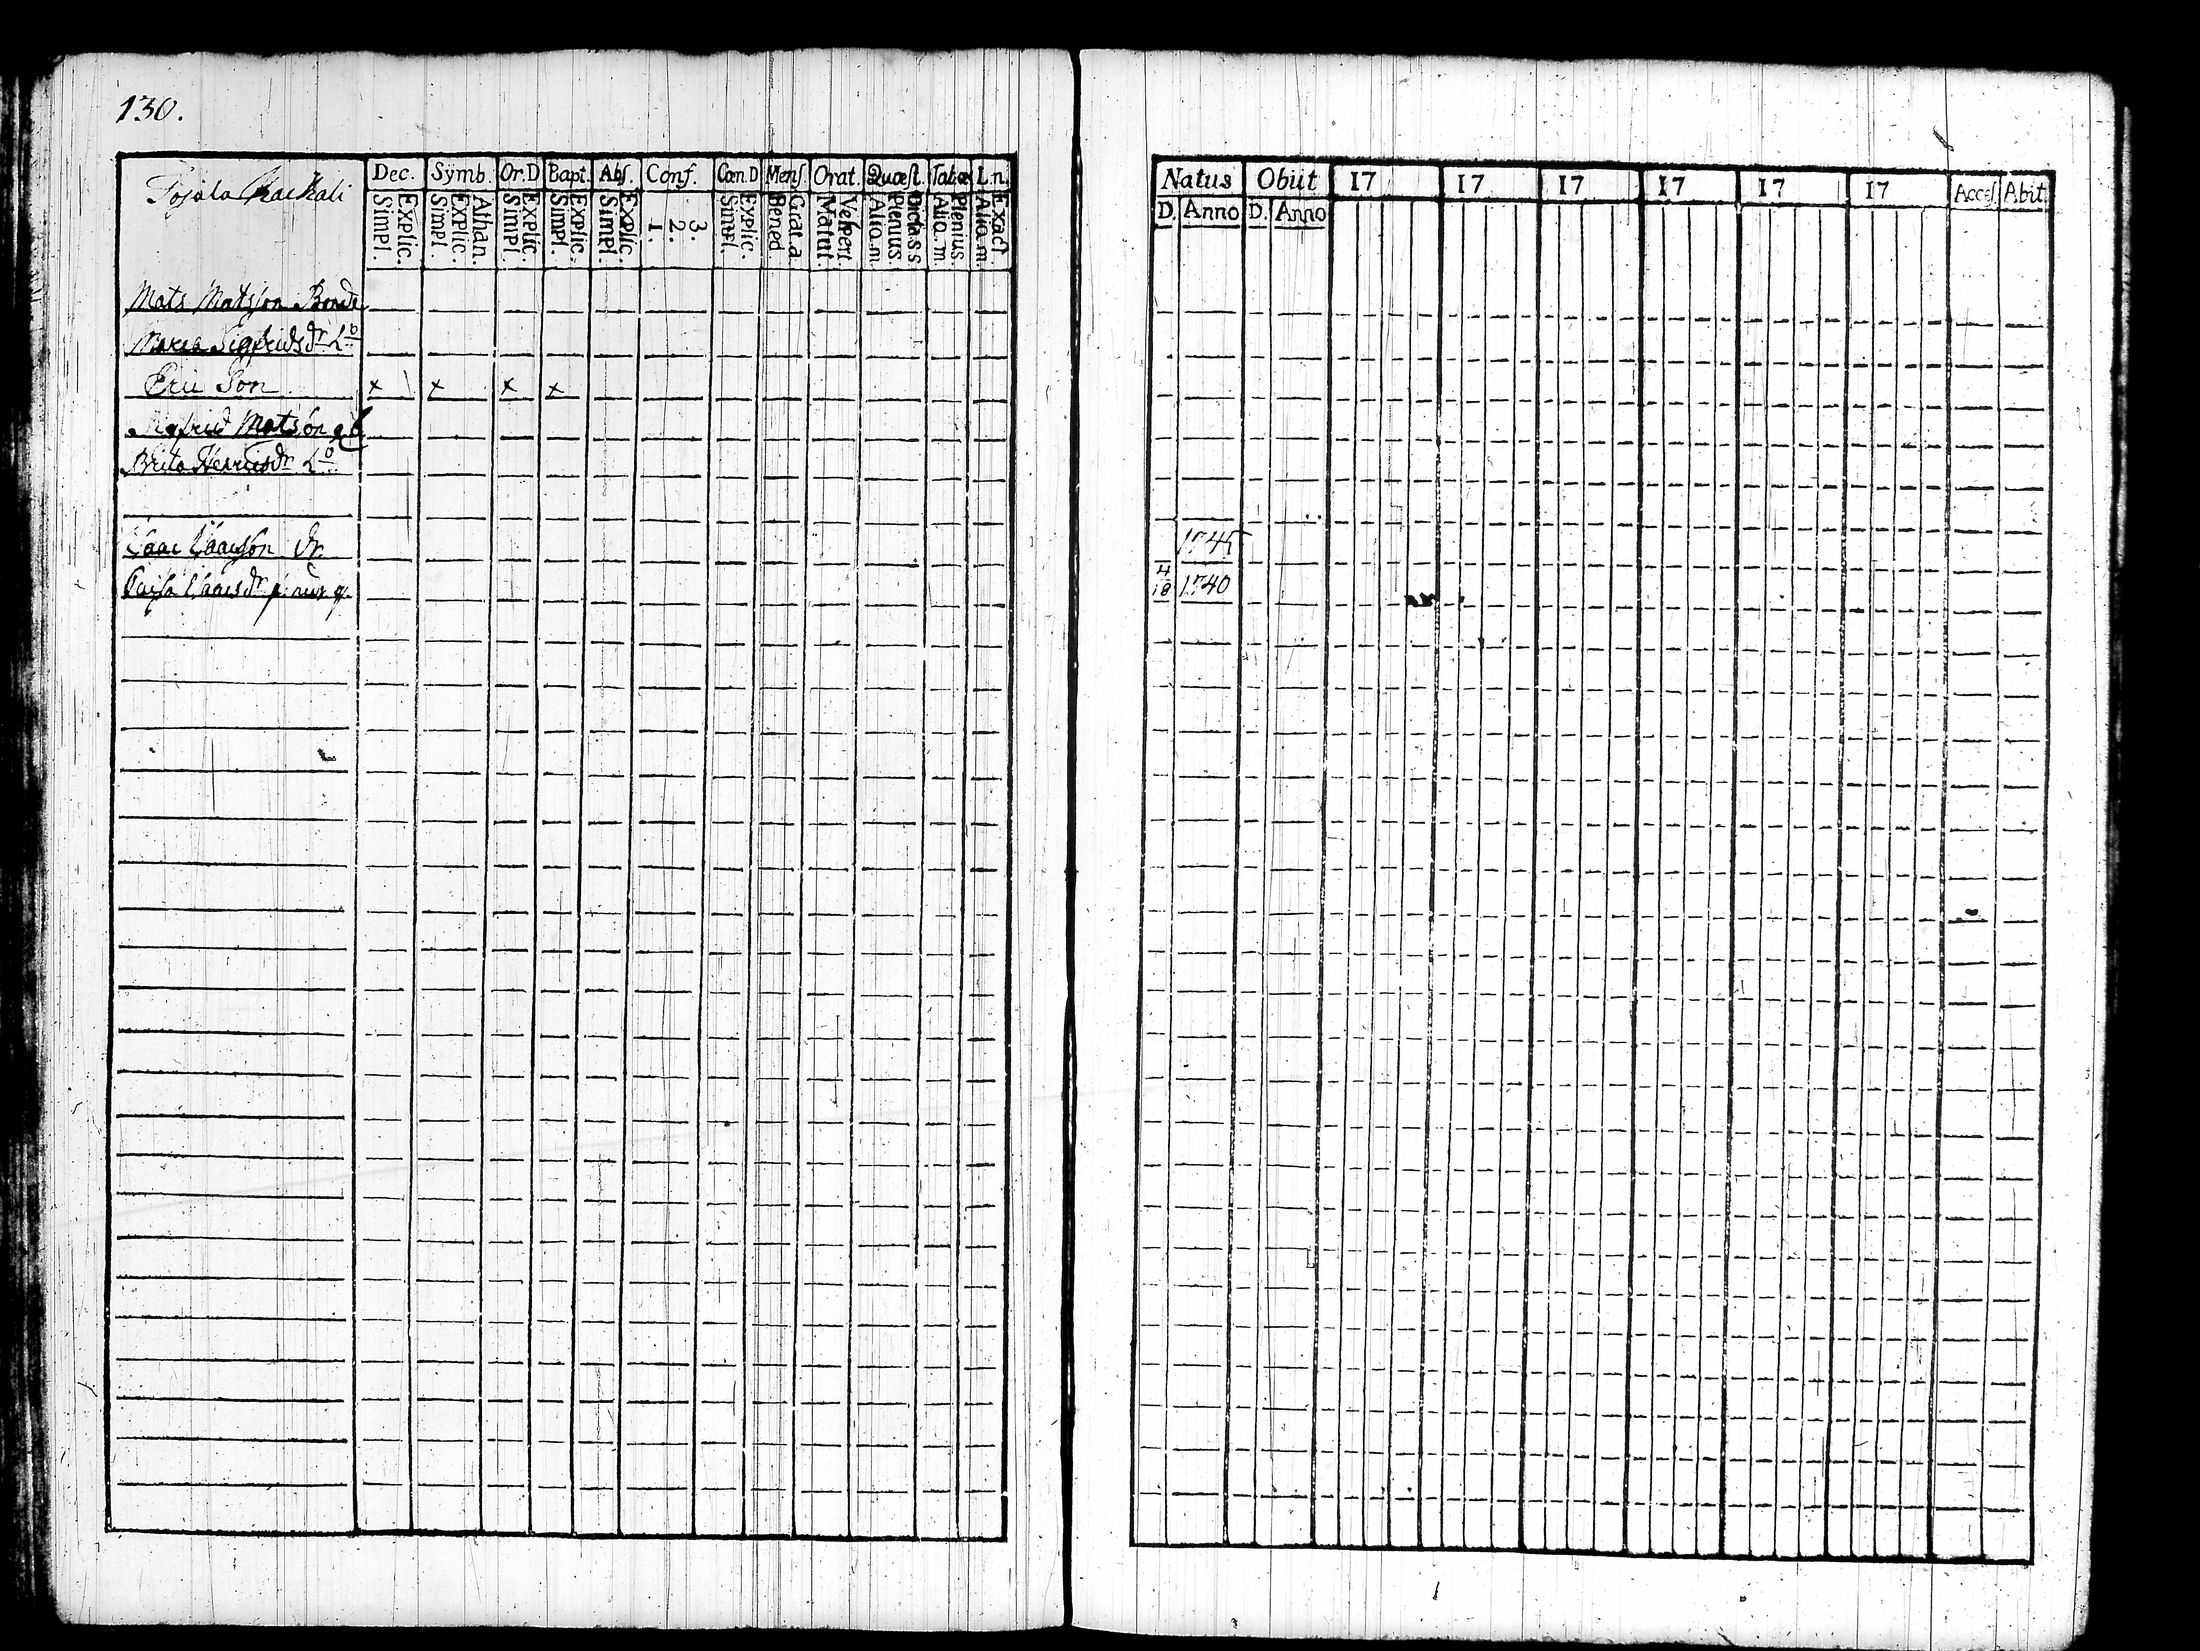 130.
Tojala Kackali
Dec. Symb. Or.D Bapt. Abſ. Conf. Cœn.D Menſ Orat. Quæſt. Tabæ L.n.
Simpl. Explic. Simpl. Explic. Athan. Simpl. Explic. Simpl. Explic. Simpl. Explic. 1. 2. 3. Simpl. Explic. Bened. Grat.a. Matut. Veſpert. Alio.m. Plenius Dicta s.s Alio.m. Plenius. Alio.m. Exact
Mats Matsson Bonde
Maria Sigfridsdr
Eric Son x x x x
Sigfrid Matsson
Brita Henricsdr
Isaac Isaacsson dr.
Caisa Isaacsdr
Natus Obiit 17 17 17 17 17 17 Acceſ. Abit
D. Anno D. Anno
1745
4/18 1740